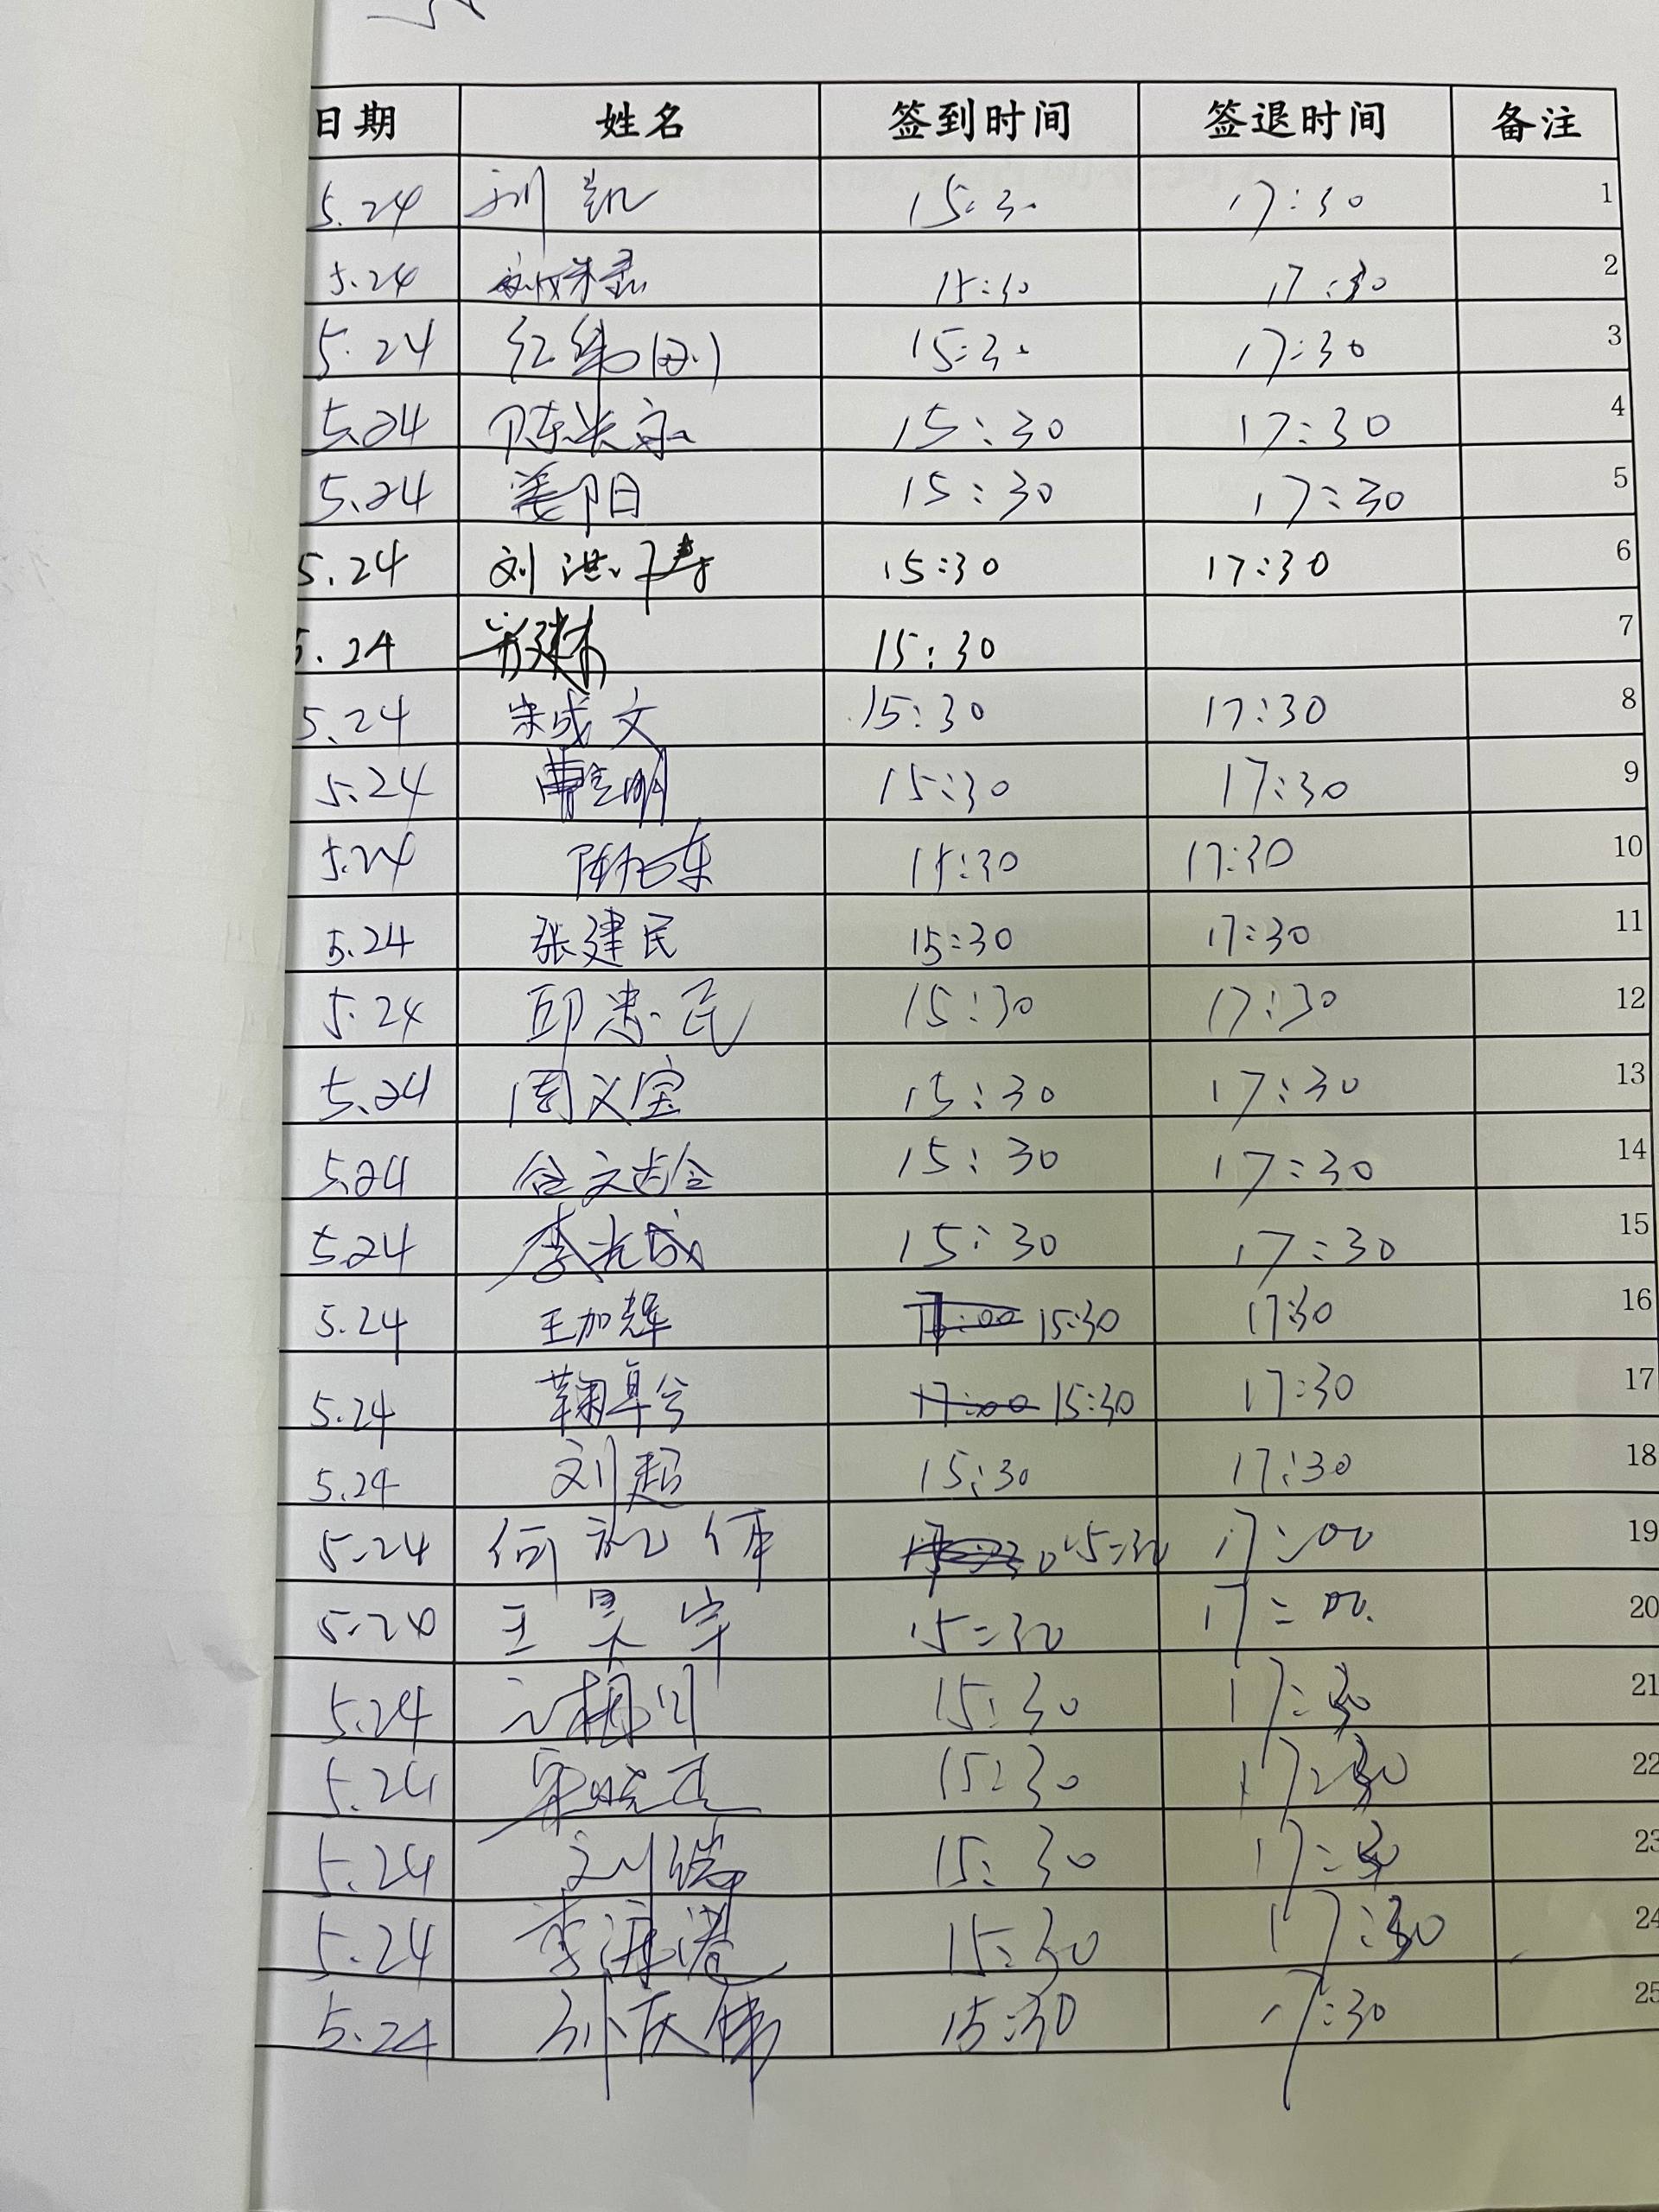 日期 姓名 签到时间 签退时间 备注
5.24 刘凯 15:30 17:30 1
5.24 15:30 17:30 2
5.24 15:30 17:30 3
5.24 陈长家 15:30 17:30 4
5.24 姜阳 15:30 17:30 5
5.24 刘洪涛 15:30 17:30 6
5.24 15:30 7
5.24 宋成文 15:30 17:30 8
5.24 曹立明 15:30 17:30 9
5.24 15:30 17:30 10
5.24 张建民 15:30 17:30 11
5.24 邱忠民 15:30 17:30 12
5.24 周义宝 15:30 17:30 13
5.24 仝文龄 15:30 17:30 14
5.24 李光成 15:30 17:30 15
5.24 王加辉 15:30 17:30 16
5.24 鞠阜兮 15:30 17:30 17
5.24 刘超 15:30 17:30 18
5.24 15:30 17:00 19
5.24 王昊宇 15:30 17:00 20
5.24 15:30 17:30 21
5.24 15:30 17:30 22
5.24 15:30 17:30 23
5.24 15:30 17:30 24
5.24 孙庆伟 15:30 17:30 25